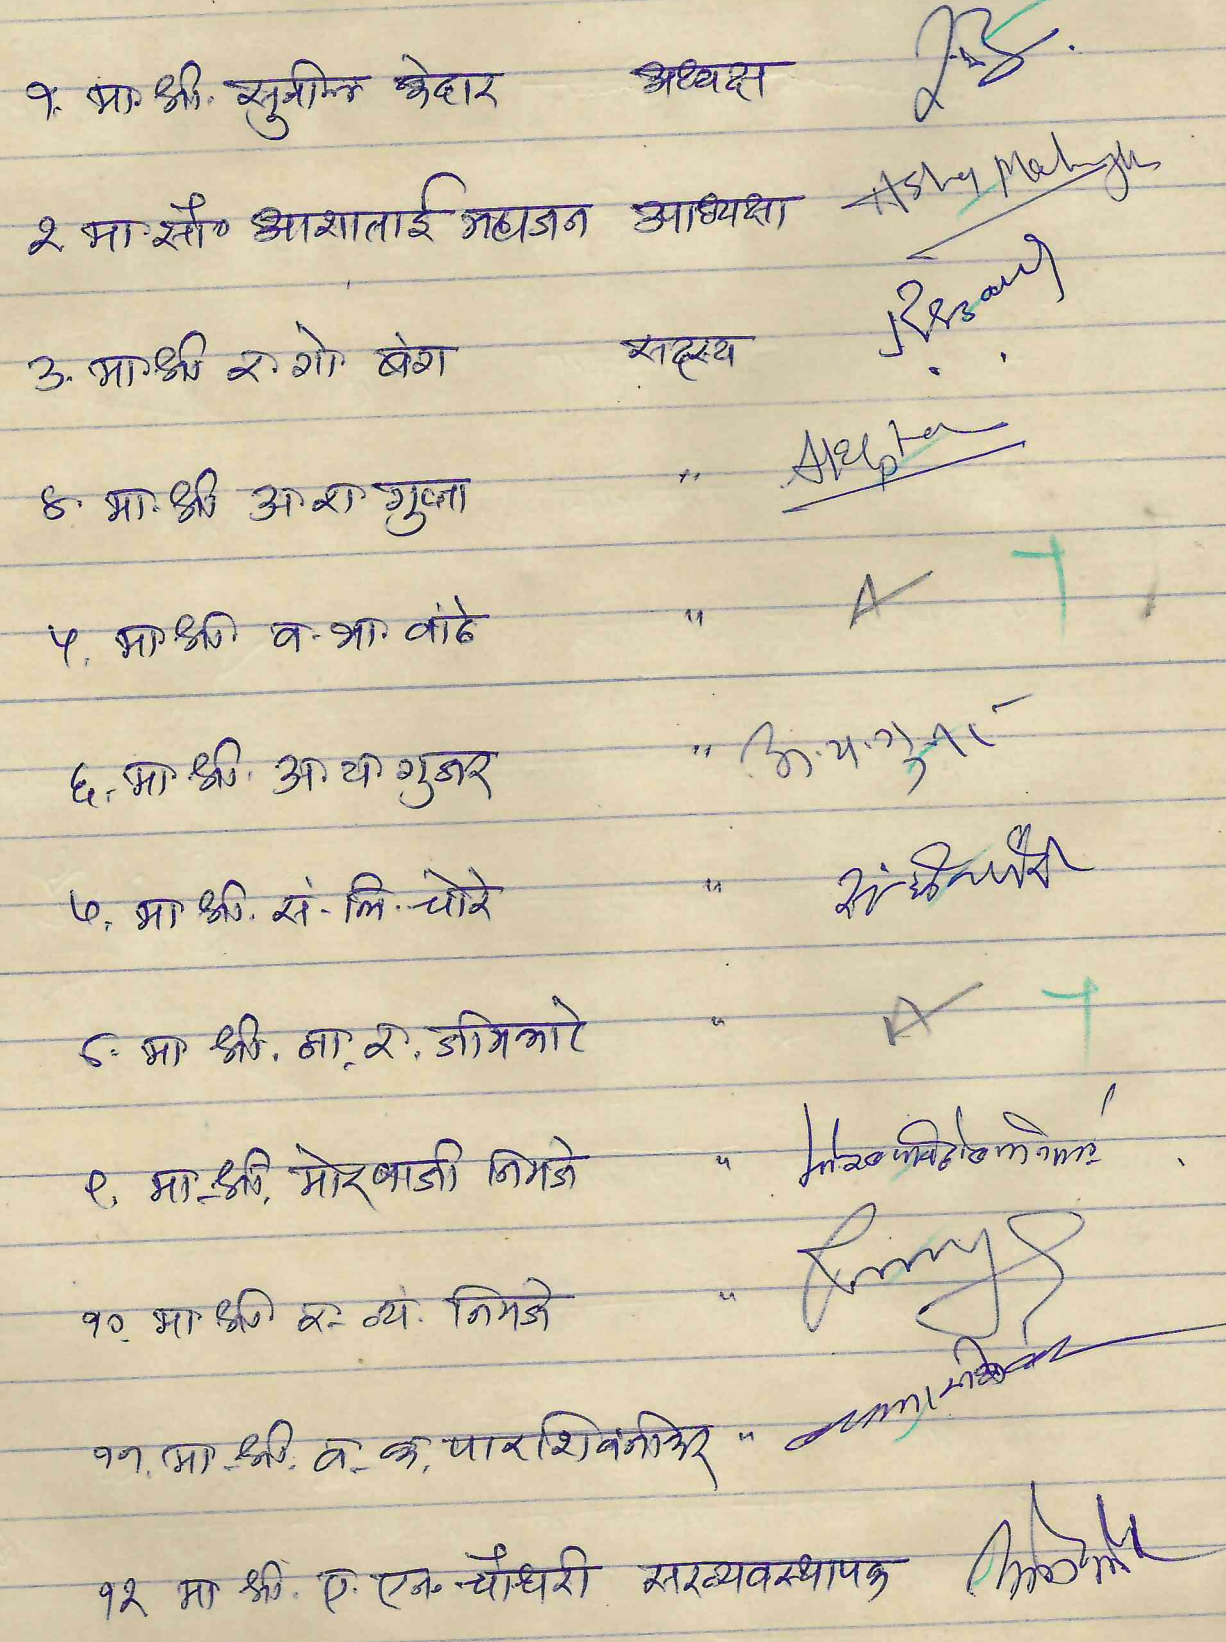 १. मा. श्री. सुनील केदार अध्यक्ष
२ मा. सौ० आशाताई महाजन उपाध्यक्षा Asha Mahajan
३. मा. श्री र. गो. बंग सदस्य
४. मा. श्री अ. रा. गुप्ता " ARGupta
५. मा. श्री व. भा. वांढे " A
६. मा. श्री. अ. य. गुजर " अ. य. गुजर
७. मा. श्री. सं. लि. चोरे "
८. मा. श्री. ना. र. " A
९. मा. श्री. मोरबाजी निमजे "
१०. मा. श्री र. व्यं. निमजे "
११. मा. श्री. व. क. पारशिवनीकर "
१२ मा. श्री. ए. एन. चौधरी सरव्यवस्थापक